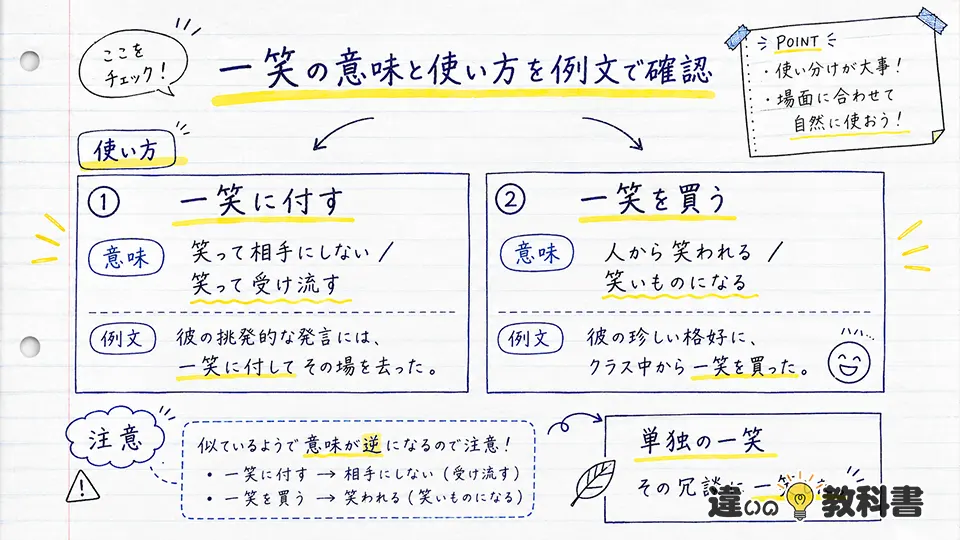 ここを
チェック!
一笑の意味と使い方を例文で確認
POINT
・使い分けが大事!
・場面に合わせて
自然に使おう!
使い方
① 一笑に付す
意味
笑って相手にしない /
笑って受け流す
例文
彼の挑発的な発言には、
一笑に付してその場を去った。
② 一笑を買う
意味
人から笑われる /
笑いものになる
例文
彼の珍しい格好に、
クラス中から一笑を買った。
注意
似ているようで意味が逆になるので注意!
• 一笑に付す → 相手にしない (受け流す)
• 一笑を買う → 笑われる (笑いものになる)
単独の一笑
その冗談に一
違いの教科書